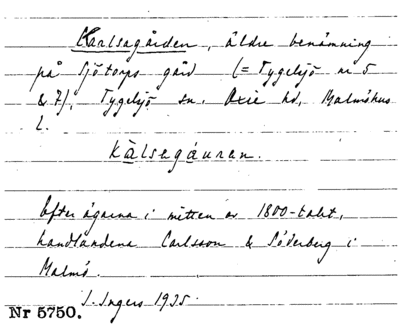 Karlsagården, äldre benämning
på Sjötorps gård (= Tygelsjö nr 5
& 7), Tygelsjö sn. Oxie hd, Malmöhus
l.
Kålsagáuran.
Efter ägarna i mitten av 1800-talet,
handlandena Carlsson & Söderberg i
Malmö.
I. Ingers 1935.
Nr 5750.